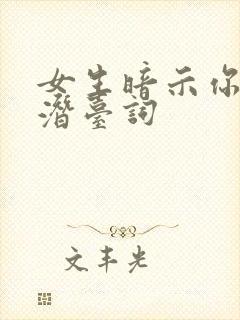 女生暗示你
潛臺詞
文丰光